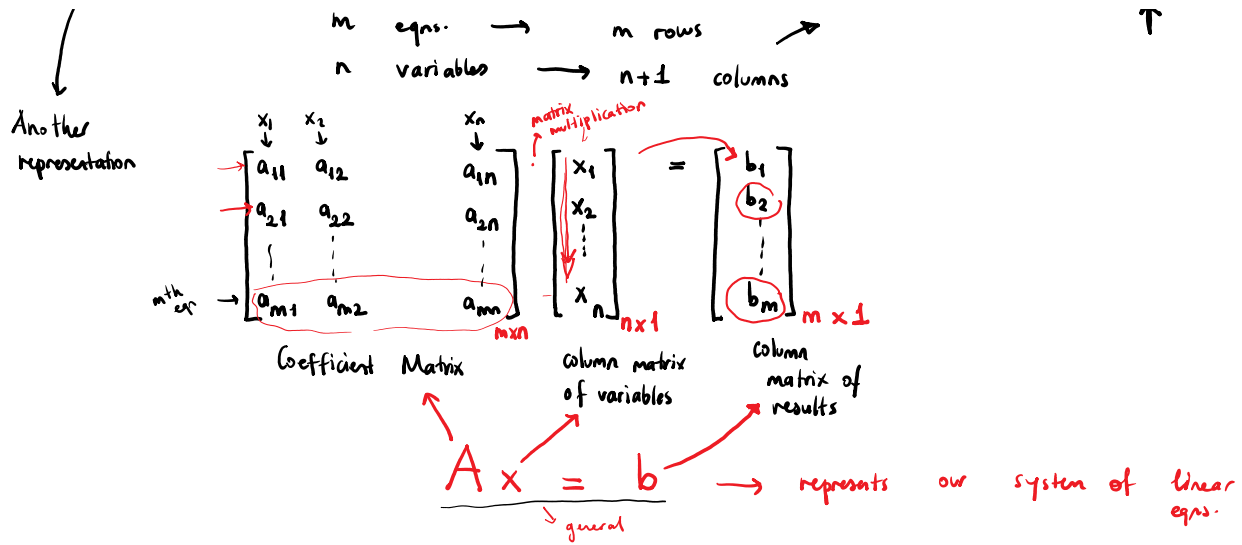 m eqns. → m rows
n variables → n+1 columns
Another
representation
x₁ x₂ xₙ
matrix
multiplication
a₁₁ a₁₂ a₁ₙ x₁ = b₁
a₂₁ a₂₂ a₂ₙ x₂ b₂
mᵗʰ eq → aₘ₁ aₘ₂ aₘₙ xₙ bₘ
m×n n×1 m×1
Coefficient Matrix
column matrix
of variables
column
matrix of
results
A x = b → represents our system of linear
eqns.
general